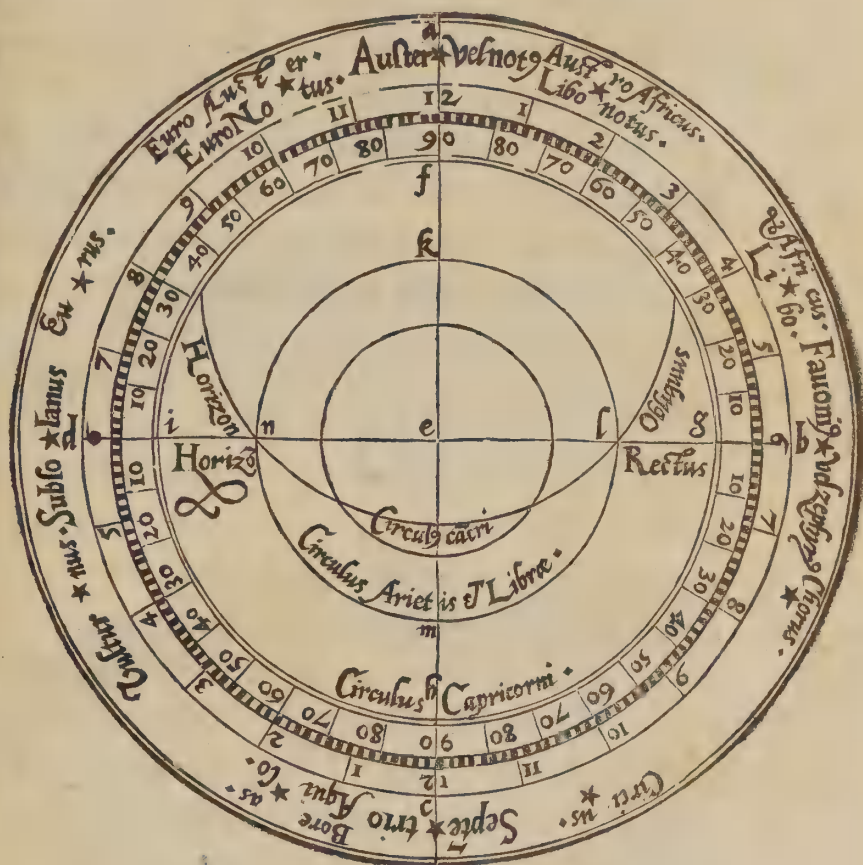 a
Auster * vel notꝰ
Aust ro Africus.
Libo * notus.
Africus.
Li * bo.
Fauoniꝰ * vel zephyrꝰ
Chorus.
*
Circi us.
*
Septē * trio
Aqui lo.
Bore * as.
Vultur * nus.
Subso * lanus
Eu * rus.
Euro Aust er.
Euro No * tus.
12
1
2
3
4
5
6
7
8
9
10
11
12
1
2
3
4
5
6
7
8
9
10
11
90
80
70
60
50
40
30
20
10
10
20
30
40
50
60
70
80
90
80
70
60
50
40
30
20
10
10
20
30
40
50
60
70
80
f
k
Horizon
Obliquus
d
i
n
e
l
g
b
Horizō
Rectus
Circulꝰ cācri
Circulus Arietis & Libræ.
m
Circulus h Capricorni.
c